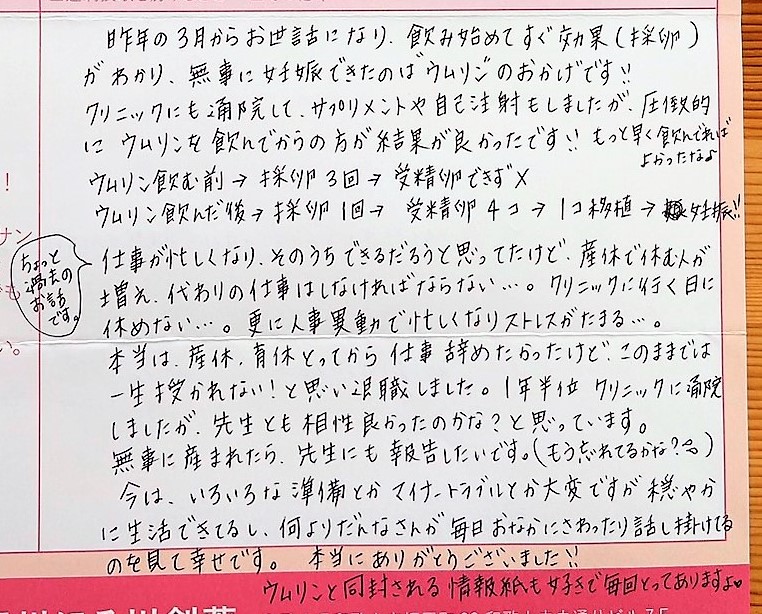 昨年の3月からお世話になり、飲み始めてすぐ効果(採卵)
がわかり、無事に妊娠できたのはウムリンのおかげです!!
クリニックにも通院して、サプリメントや自己注射もしましたが、圧倒的
にウムリンを飲んでからの方が結果が良かったです!! もっと早く飲んでれば
よかったなぁ
ウムリン飲む前→採卵3回→受精卵できず×
ウムリン飲んだ後→採卵1回→受精卵4コ→1コ移植→妊娠!!
ちょっと
過去の
お話
です。
仕事が忙しくなり、そのうちできるだろうと思ってたけど、産休で休む人が
増え、代わりの仕事はしなければならない…。クリニックに行く日に
休めない…。更に人事異動で忙しくなりストレスがたまる…。
本当は、産休、育休とってから仕事辞めたかったけど、このままでは
一生授かれない!と思い退職しました。1年半位クリニックに通院
しましたが、先生とも相性良かったのかな?と思っています。
無事に産まれたら、先生にも報告したいです。(もう忘れてるかな?)
今は、いろいろな準備とかマイナートラブルとか大変ですが穏やか
に生活できてるし、何よりだんなさんが毎日おなかにさわったり話し掛けてる
のを見て幸せです。 本当にありがとうございました!!
ウムリンと同封される情報紙も好きで毎回とってありますよ♡
!
ナン
も
い。